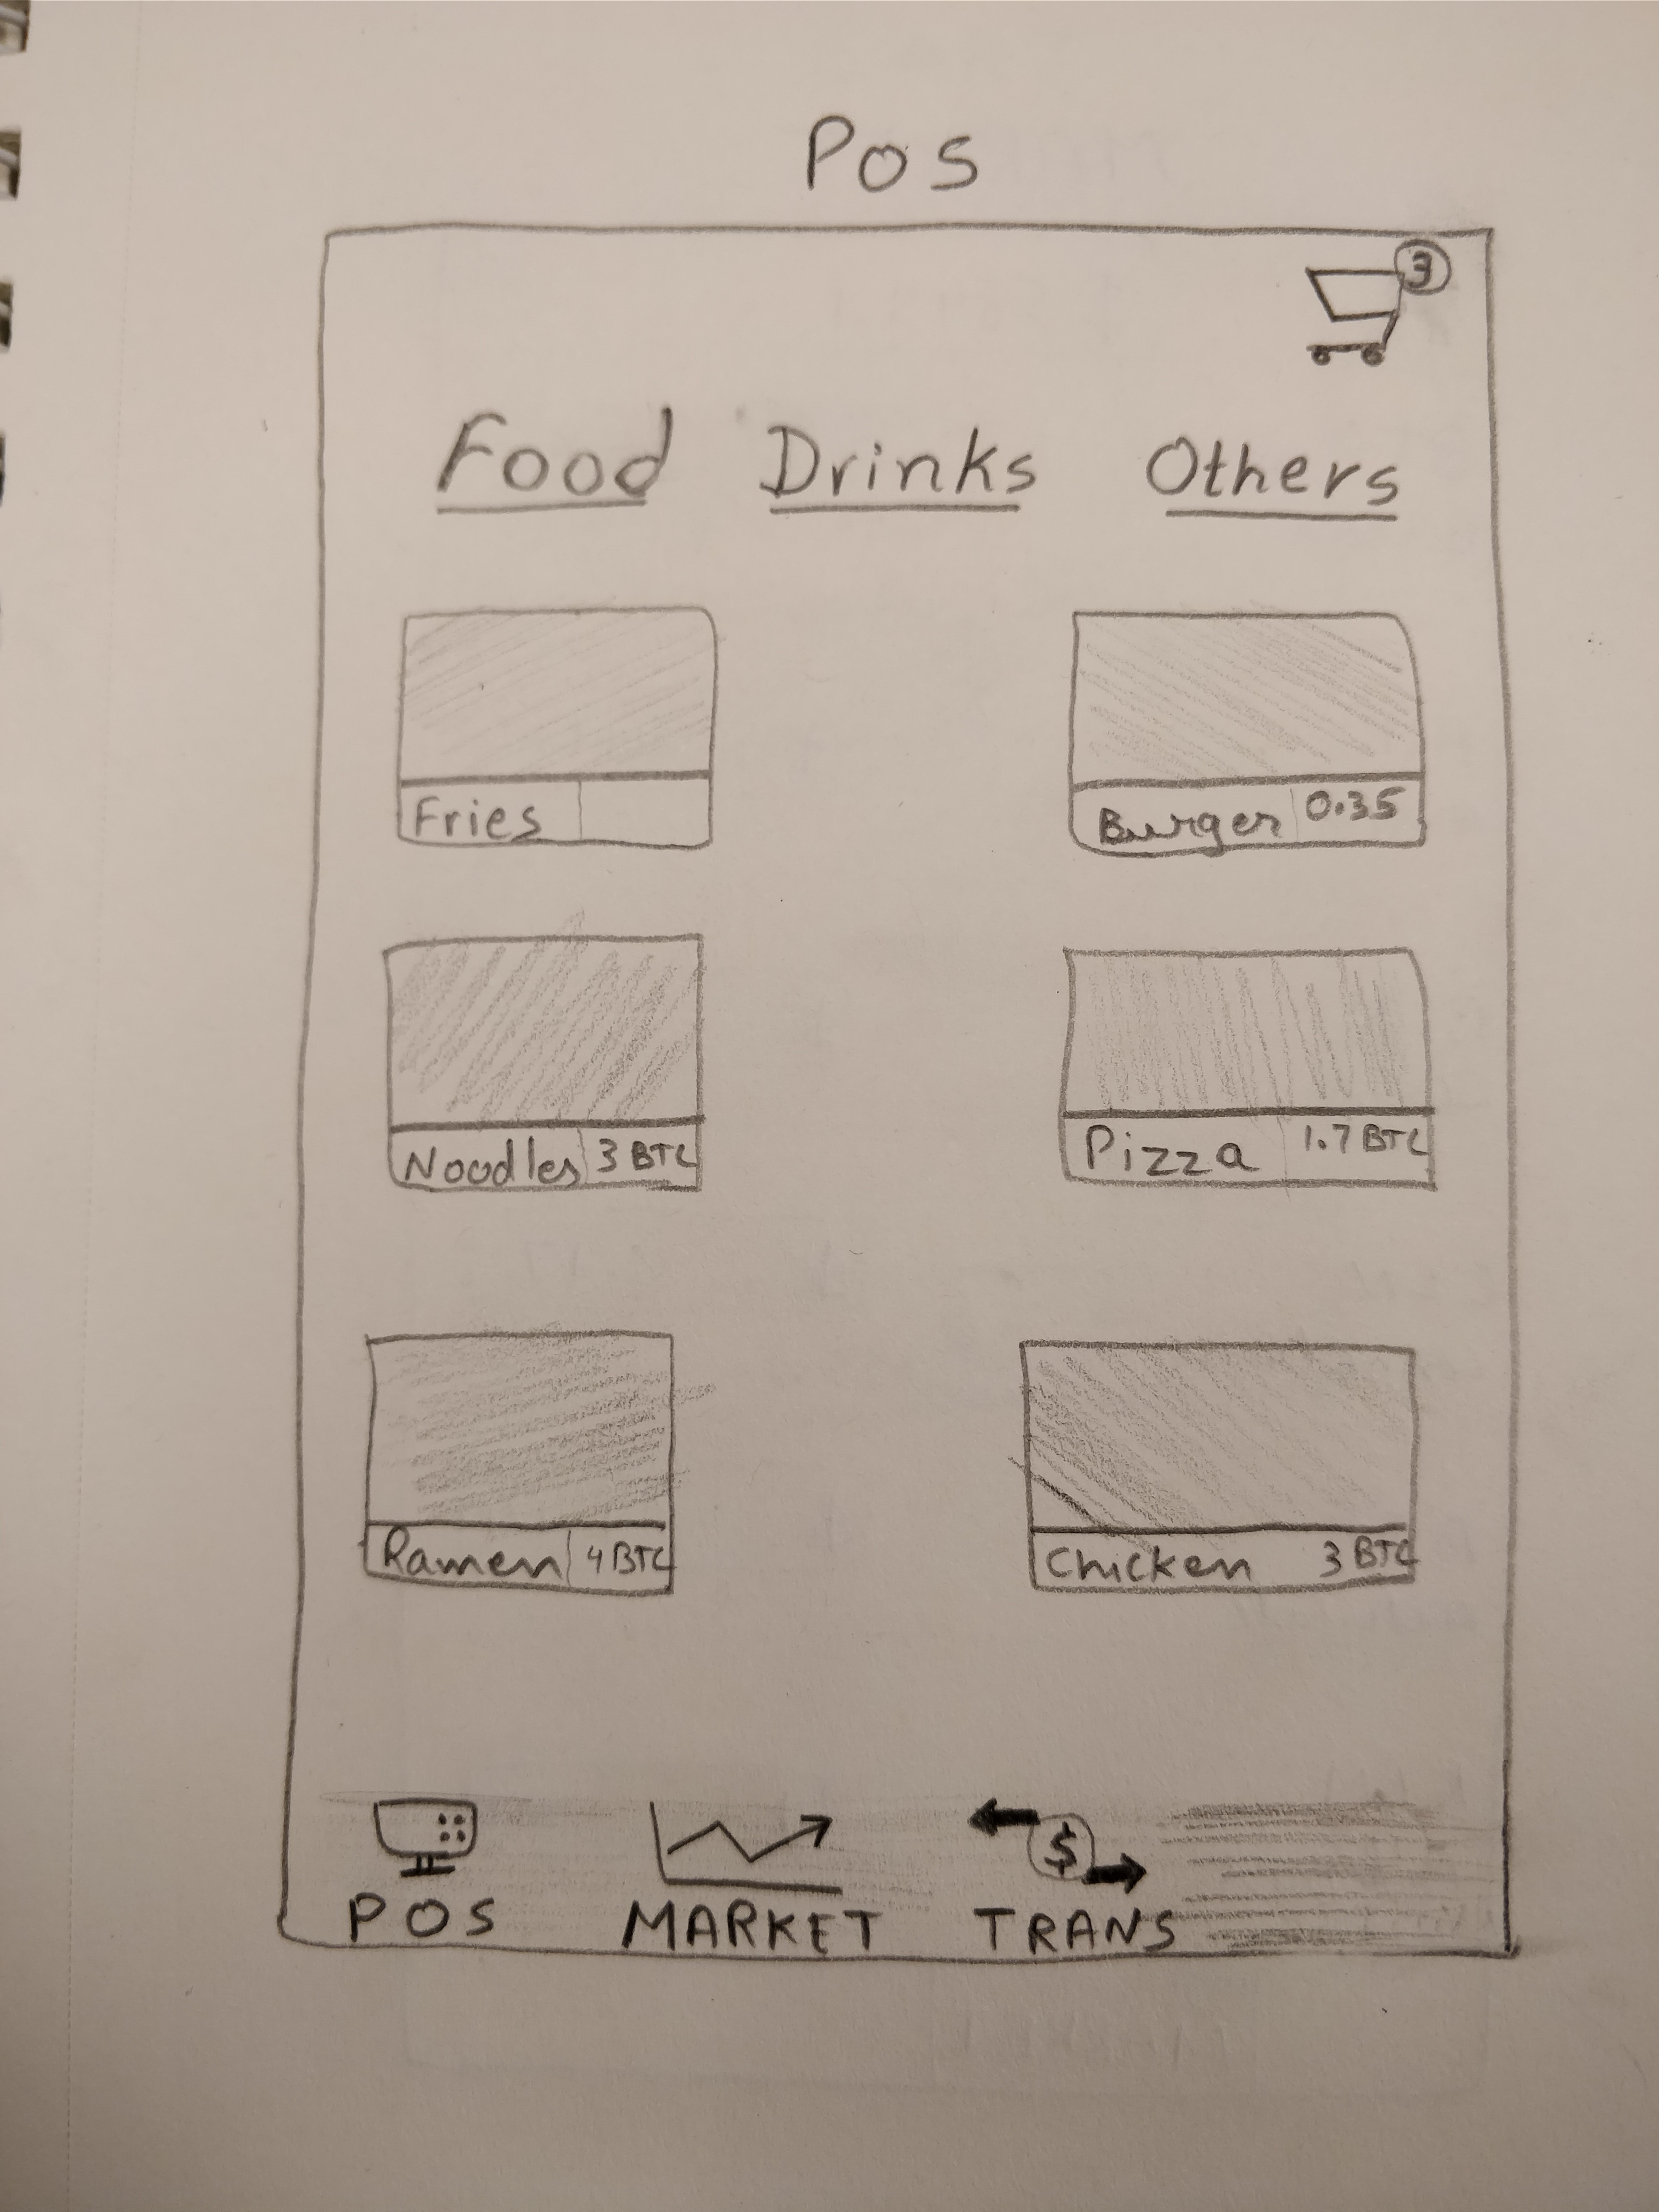 Pos
3
Food Drinks Others
Fries
Burger 0.35
Noodles 3 BTC
Pizza 1.7 BTC
Ramen 4 BTC
Chicken 3 BTC
$
POS MARKET TRANS